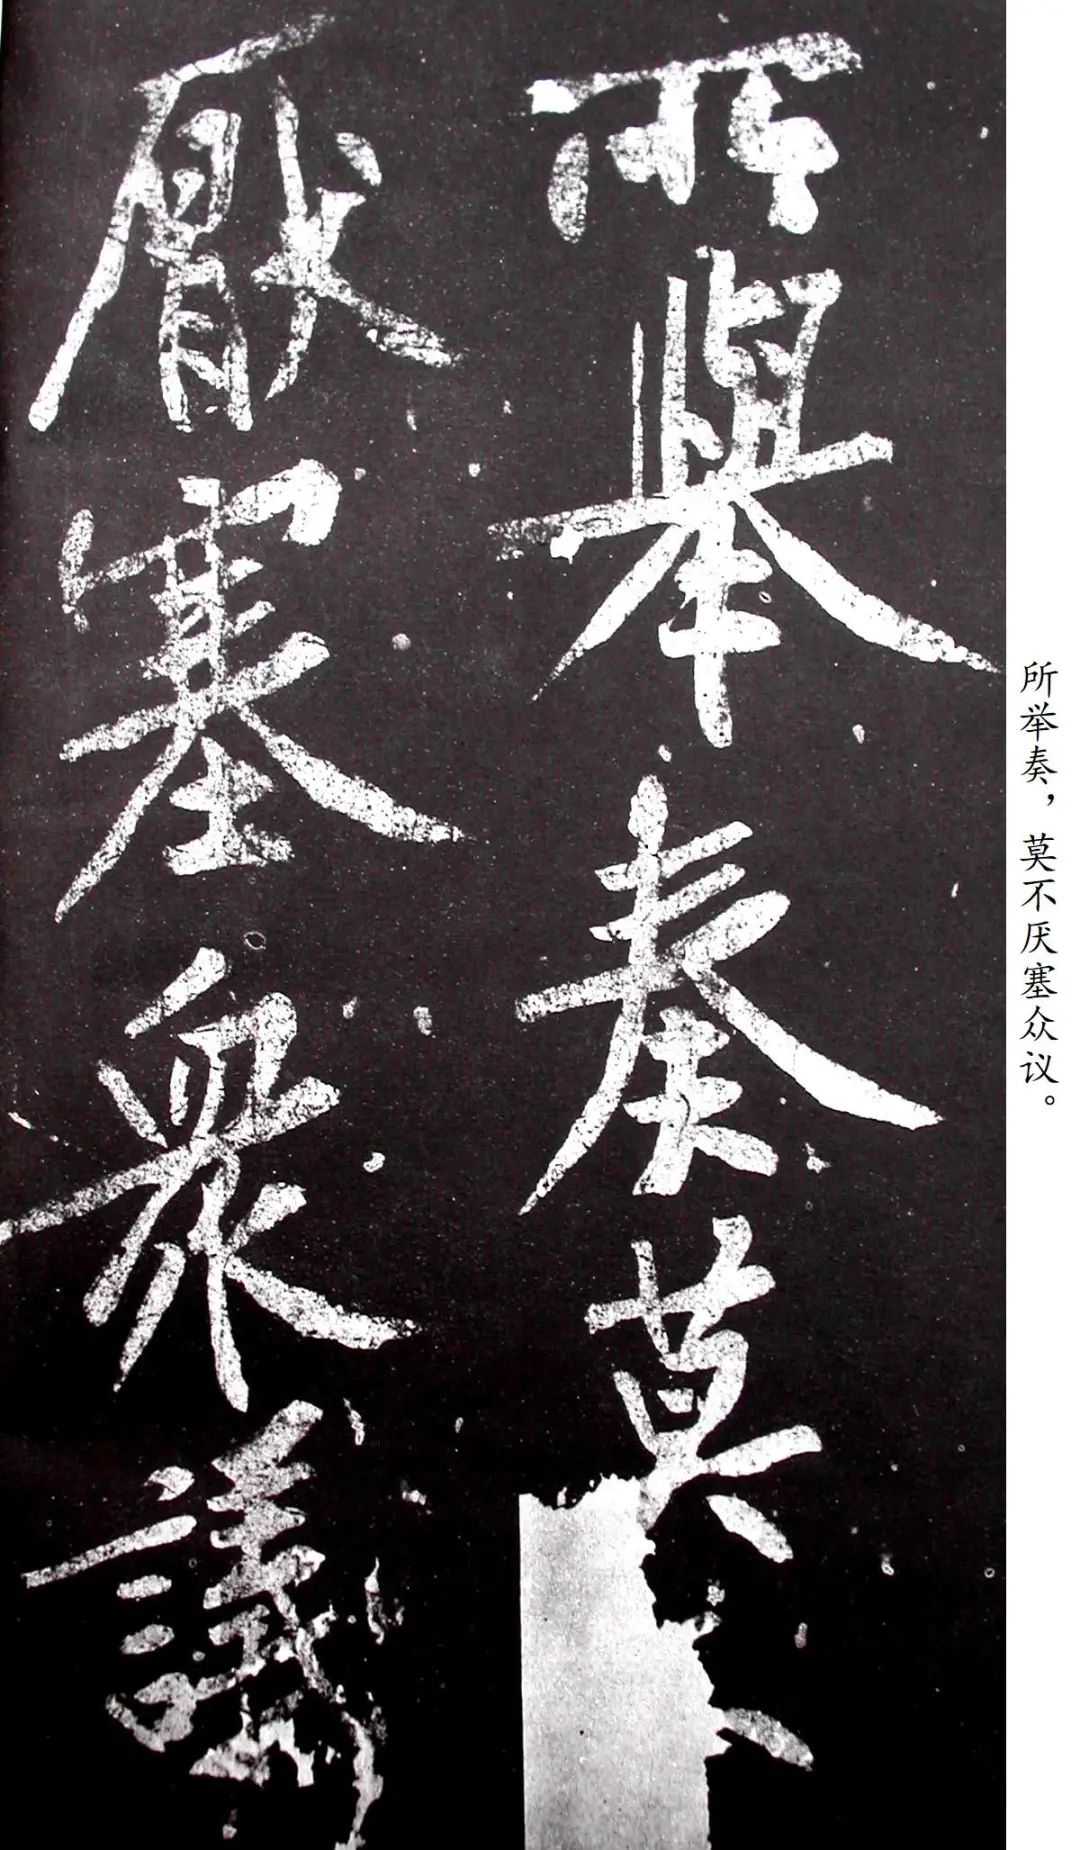 所舉奏莫不
厭塞衆議
所举奏，莫不厌塞众议。